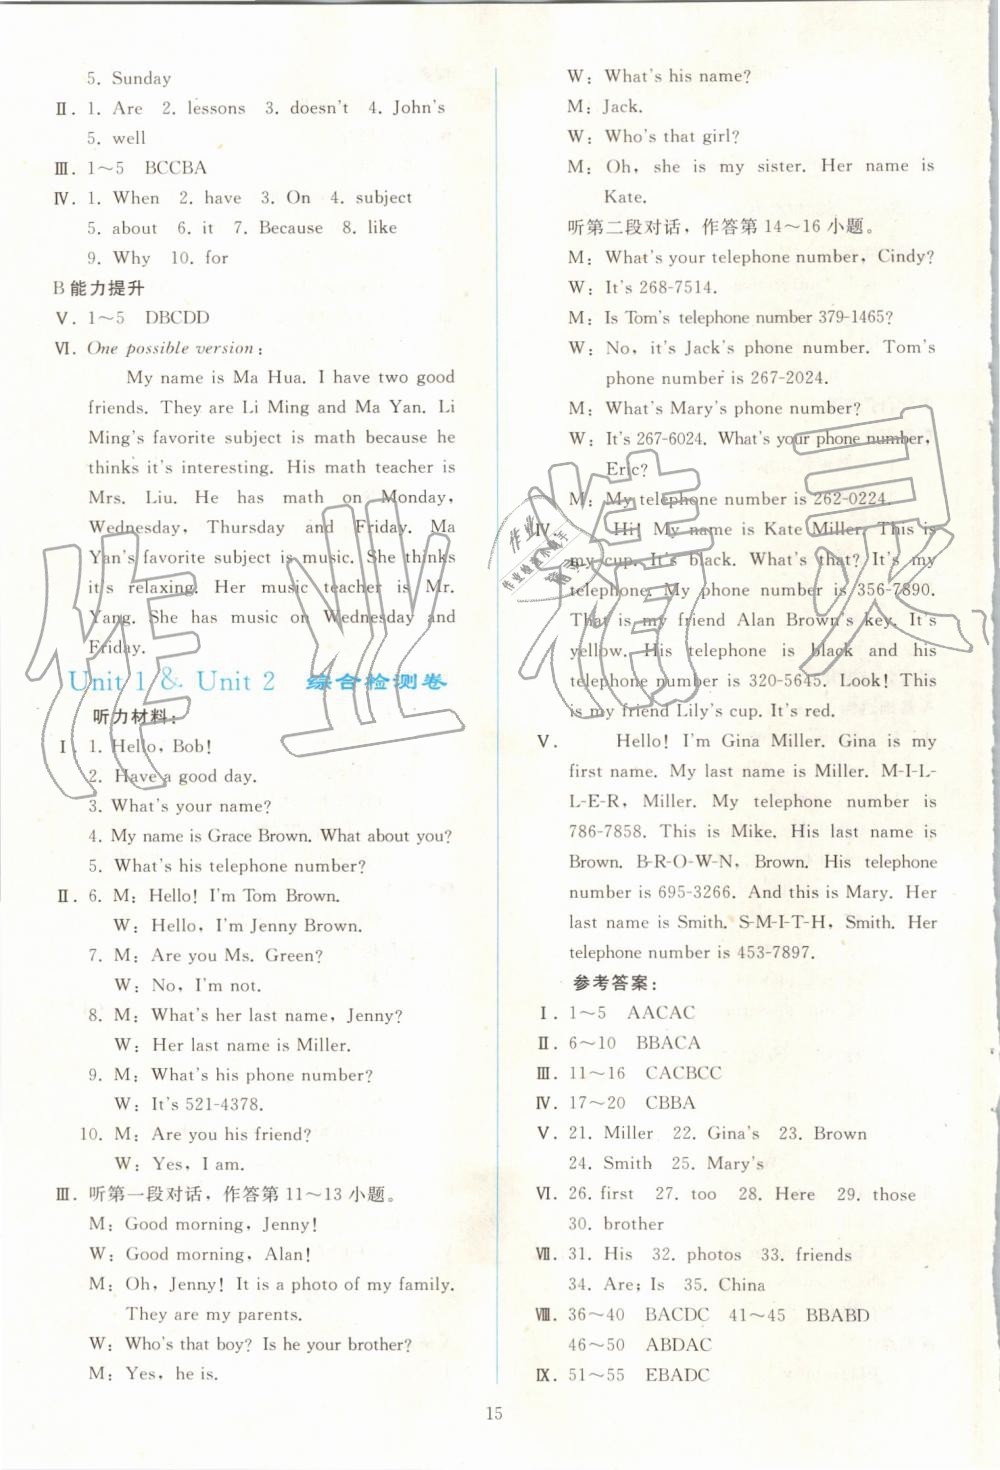 5. Sunday
Ⅱ. 1. Are 2. lessons 3. doesn't 4. John's
5. well
Ⅲ. 1～5 BCCBA
Ⅳ. 1. When 2. have 3. On 4. subject
5. about 6. it 7. Because 8. like
9. Why 10. for
B 能力提升
Ⅴ. 1～5 DBCDD
Ⅵ. One possible version:
My name is Ma Hua. I have two good
friends. They are Li Ming and Ma Yan. Li
Ming's favorite subject is math because he
thinks it's interesting. His math teacher is
Mrs. Liu. He has math on Monday,
Wednesday, Thursday and Friday. Ma
Yan's favorite subject is music. She thinks
it's relaxing. Her music teacher is Mr.
Yang. She has music on Wednesday and
Friday.
Unit 1 & Unit 2 综合检测卷
听力材料:
Ⅰ. 1. Hello, Bob!
2. Have a good day.
3. What's your name?
4. My name is Grace Brown. What about you?
5. What's his telephone number?
Ⅱ. 6. M: Hello! I'm Tom Brown.
W: Hello, I'm Jenny Brown.
7. M: Are you Ms. Green?
W: No, I'm not.
8. M: What's her last name, Jenny?
W: Her last name is Miller.
9. M: What's his phone number?
W: It's 521-4378.
10. M: Are you his friend?
W: Yes, I am.
Ⅲ. 听第一段对话，作答第 11～13 小题。
M: Good morning, Jenny!
W: Good morning, Alan!
M: Oh, Jenny! It is a photo of my family.
They are my parents.
W: Who's that boy? Is he your brother?
M: Yes, he is.
W: What's his name?
M: Jack.
W: Who's that girl?
M: Oh, she is my sister. Her name is
Kate.
听第二段对话，作答第 14～16 小题。
M: What's your telephone number, Cindy?
W: It's 268-7514.
M: Is Tom's telephone number 379-1465?
W: No, it's Jack's phone number. Tom's
phone number is 267-2024.
M: What's Mary's phone number?
W: It's 267-6024. What's your phone number,
Eric?
M: My telephone number is 262-0224.
Ⅳ. Hi! My name is Kate Miller. This is
my cup. It's black. What's that? It's my
telephone. My phone number is 356-7890.
That is my friend Alan Brown's key. It's
yellow. His telephone is black and his
telephone number is 320-5645. Look! This
is my friend Lily's cup. It's red.
Ⅴ. Hello! I'm Gina Miller. Gina is my
first name. My last name is Miller. M-I-L-
L-E-R, Miller. My telephone number is
786-7858. This is Mike. His last name is
Brown. B-R-O-W-N, Brown. His telephone
number is 695-3266. And this is Mary. Her
last name is Smith. S-M-I-T-H, Smith. Her
telephone number is 453-7897.
参考答案:
Ⅰ. 1～5 AACAC
Ⅱ. 6～10 BBACA
Ⅲ. 11～16 CACBCC
Ⅳ. 17～20 CBBA
Ⅴ. 21. Miller 22. Gina's 23. Brown
24. Smith 25. Mary's
Ⅵ. 26. first 27. too 28. Here 29. those
30. brother
Ⅶ. 31. His 32. photos 33. friends
34. Are; Is 35. China
Ⅷ. 36～40 BACDC 41～45 BBABD
46～50 ABDAC
Ⅸ. 51～55 EBADC
15
作业精灵